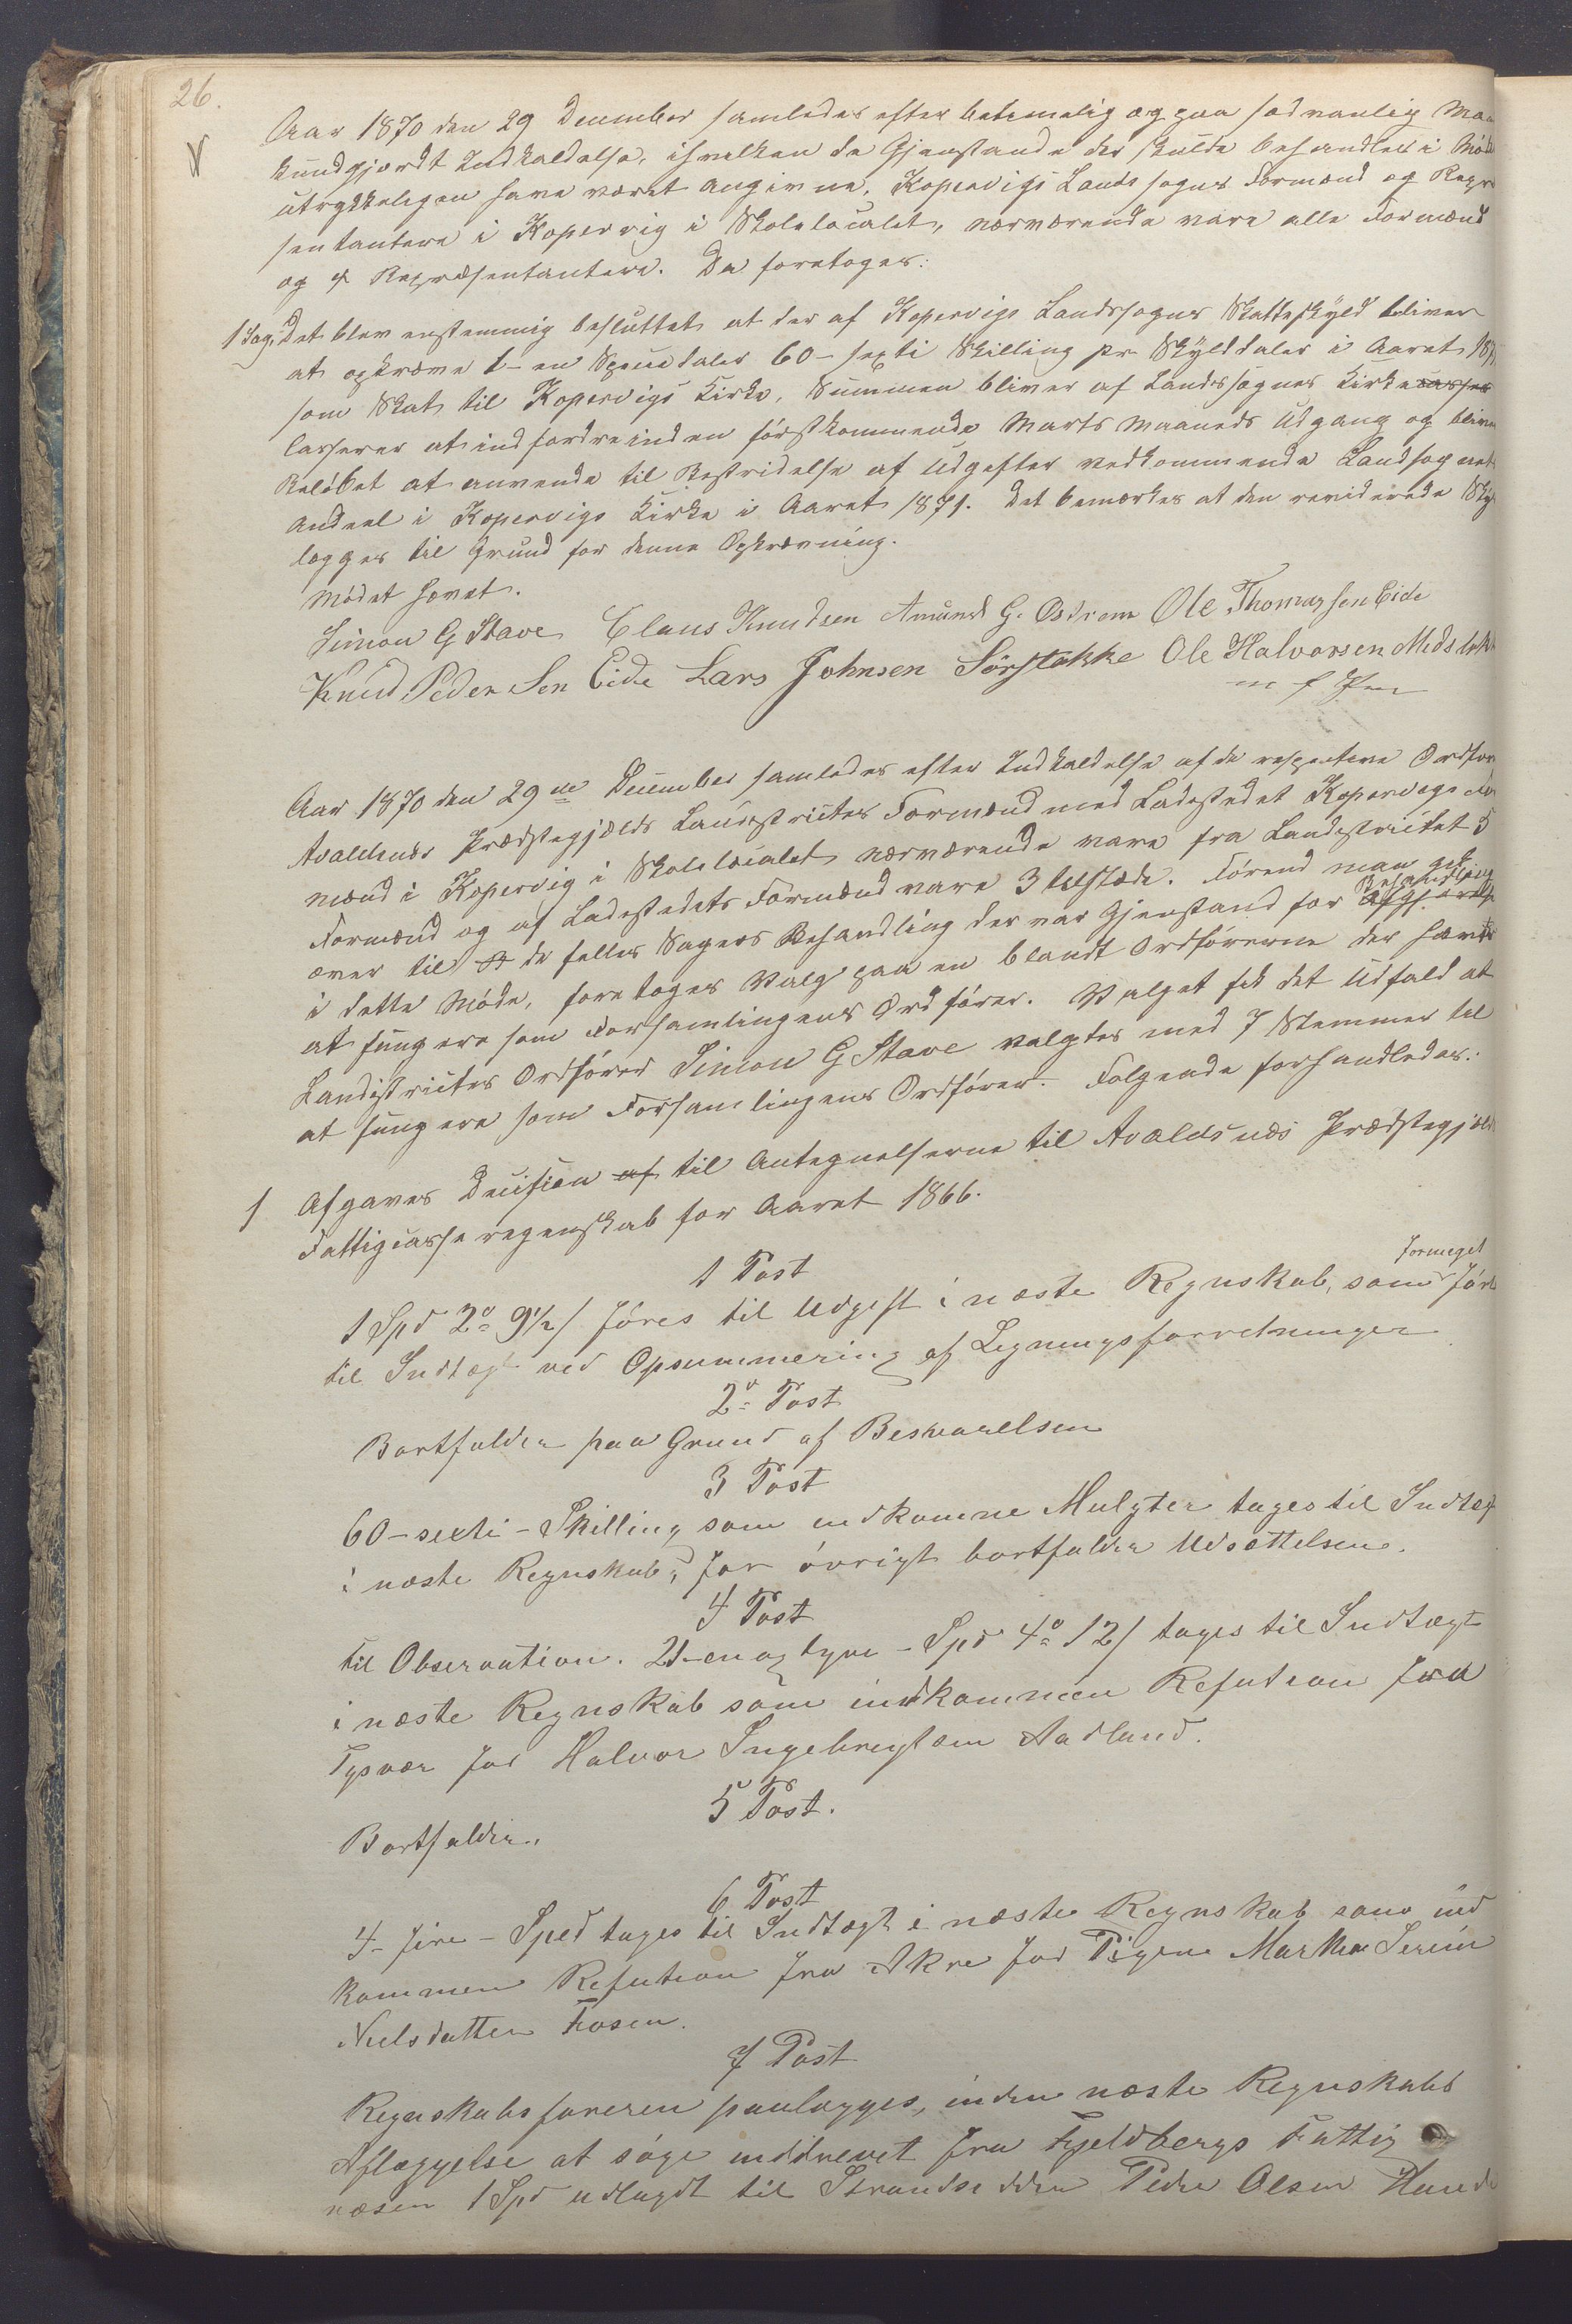 26.
Aar 1870 den 29 December samledes efter betimelig og paa sædvanlig Maa
kundgjordt Indkaldelse, i hvilken de Gjenstande der skulde behandles i Møde
utrykkeligen have været angivne, Kopervigs Landssogns Formænd og Repræ
sentantere i Kopervig i Skolelocalet, nærværende vare alle Formænd
og 4 Repræsentantere. Da foretoges:
1 Sag. Det blev enstemmig besluttet at der af Kopervigs Landssogns Skatteskyld bliver
at opkræve 1 - en Speciedaler 60 - sexti Skilling pr Skylddaler i Aaret 187
som Skat til Kopervigs Kirke, Summen bliver af Landssognes Kirke
casserer at indfordre inden førstkommende Marts Maaneds Udgang og bliver
Beløbet at anvende til Bestridelse af Udgifter vedkommende Landsognets
Andeel i Kopervigs Kirke i Aaret 1871. Det bemærkes at den reviderede Sky
lægges til Grund for denne Opkrævning.
Mødet hævet.
Simon G Stave Claus Knudsen Amund G. Østrem Ole Thomassen Eide
Knud Peder Sen Eide Lars Johnsen Sørstokke Ole Halvorsen Medslok
m f Pen
Aar 1870 den 29de December samledes efter Indkaldelse af de respective Ordfør
Avaldsnæs Prædstegjælds Landdistrictes Formænd med Ladestedet Kopervigs For
mænd i Kopervig i Skolelocalet nærværende vare fra Landistrictet 5
Formænd og af Ladestedets Formænd vare 3 tilstæde. Førend man gik
over til de felles Sagers Behandling der var Gjenstand for Behandling Afgjørelse
i dette Møde, foretoges Valg paa en blandt Ordførerne der havde
at fungere som Forsamlingens Ordfører. Valget fik det Udfald at
Landistrictes Ordfører Simon G Stave valgtes med 7 Stemmer til
at fungere som Forsamlingens Ordfører. Følgende forhandledes:
1 Afgaves Decision af til Antegnelserne til Avaldsnæs Prædstegjæld
Fattigcasseregenskab for Aaret 1866.
1 Post
formeget
1 Spd 2o 9½ s føres til Udgift i næste Regnskab, som ført
til Indtægt ved Opsummering af Ligningsforretninger
2o Post
Bortfalder paa Grund af Besvarelsen
3 Post
60 - sexti - Skilling som indkomne Mulgter tages til Indtægt
i næste Regnskab, for øvrigt bortfalder Udsættelsen.
4 Post
til Observation. 21 - en og tyve - Spd 4o 12 s tages til Indtægt
i næste Regnskab som indkommen Refution fra
Tysvær for Halvor Ingebregtsen Aadland.
5 Post.
Bortfalder.
6 Post
4 - fire - Sped tages til Indtægt i næste Regnskab som ind
kommen Refution fra Akre for Pigen Martha Serine
Nielsdatter Fosen.
7 Post
Regnskabsføreren paalægges, inden næste Regnskabs
Aflæggelse at søge inddrevet fra Fjeldbergs Fattig
væsen 1 Spd udlagdt til Strandsidder Peder Olsen Hunde